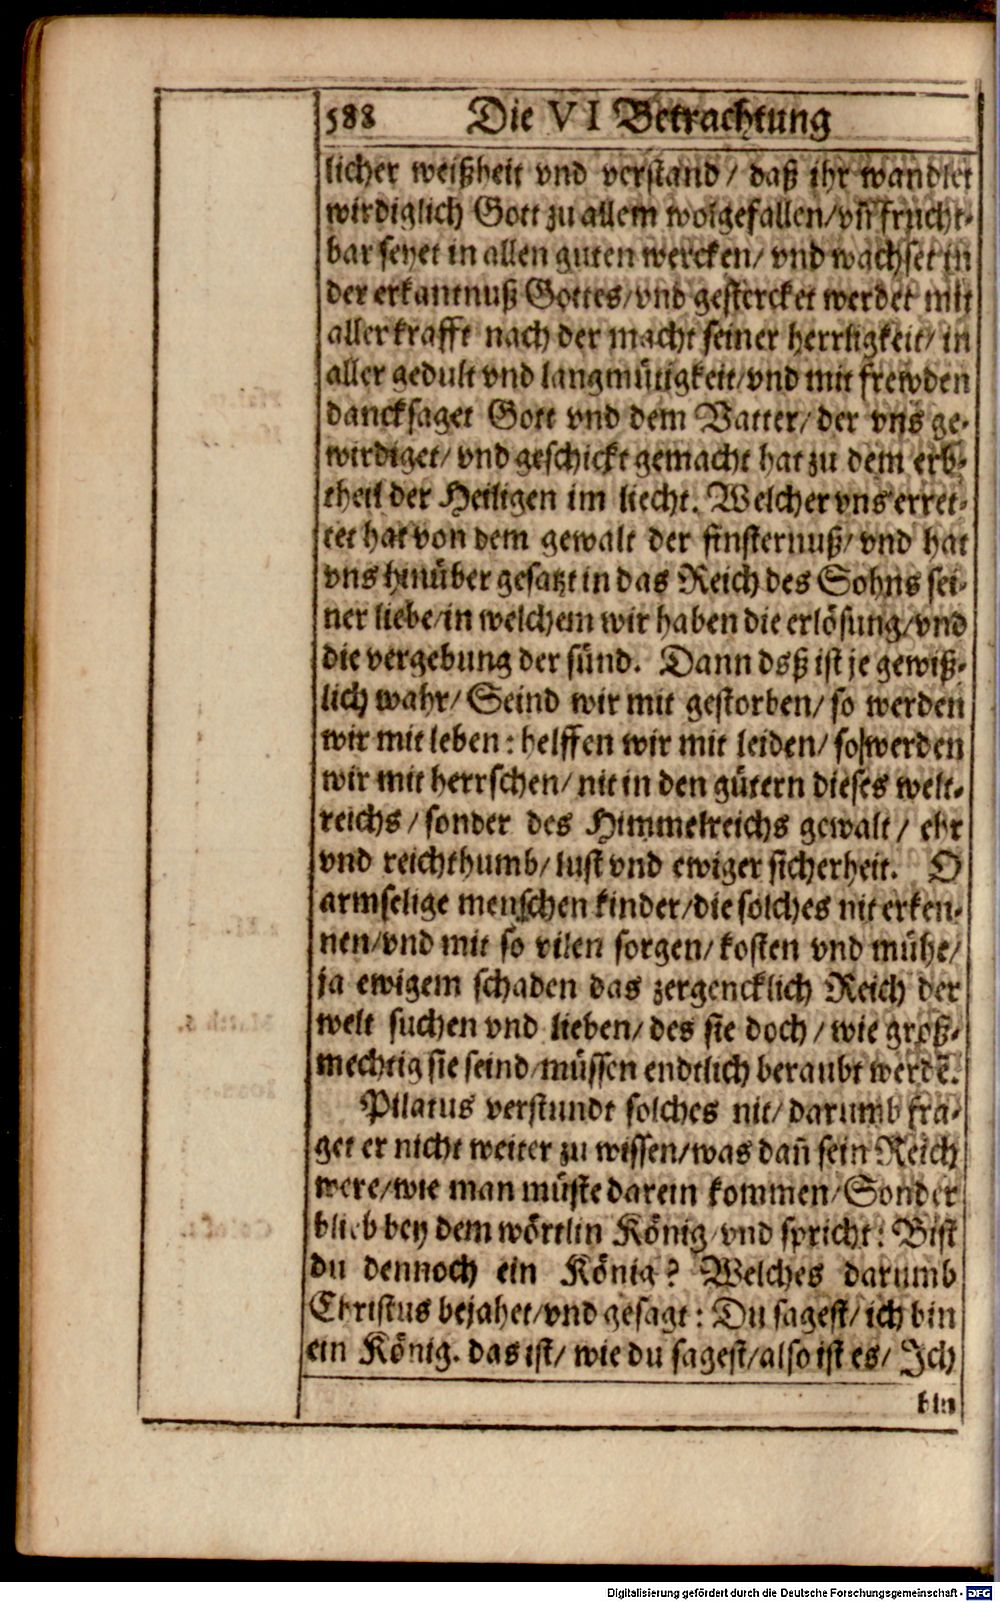 588 Die VI Betrachtung
licher weißheit vnd verstand/ daß ihr wandlet
wirdiglich Gott zu allem wolgefallen/ vn̄ frucht-
bar seyet in allen guten wercken/ vnd wachset in
der erkantnuß Gottes/ vnd gestercket werdet mit
aller krafft nach der macht seiner herrligkeit/ in
aller gedult vnd langmütigkeit/ vnd mit frewden
dancksaget Gott vnd dem Vatter/ der vns ge-
wirdiget/ vnd geschickt gemacht hat zu dem erb-
theil der Heiligen im liecht. Welcher vns erret-
tet hat von dem gewalt der finsternuß/ vnd hat
vns hinüber gesatzt in das Reich des Sohns sei-
ner liebe/ in welchem wir haben die erlösung/ vnd
die vergebung der sünd. Dann dsß ist je gewiß-
lich wahr/ Seind wir mit gestorben/ so werden
wir mit leben: helffen wir mit leiden/ so werden
wir mit herrschen/ nit in den gütern dieses welt-
reichs/ sonder des Himmelreichs gewalt/ ehr
vnd reichthumb/ lust vnd ewiger sicherheit. O
armselige menschen kinder/ die solches nit erken-
nen/ vnd mit so vilen sorgen/ kosten vnd mühe/
ja ewigem schaden das zergencklich Reich der
welt suchen vnd lieben/ des sie doch/ wie groß-
mechtig sie seind/ müssen endtlich beraubt werdē.
Pilatus verstundt solches nit/ darumb fra-
get er nicht weiter zu wissen/ was dan̄ sein Reich
were/ wie man müste darein kommen/ Sonder
blieb bey dem wörtlin König/ vnd spricht: Bist
du dennoch ein König? Welches darumb
Christus bejahet/ vnd gesagt: Du sagest/ ich bin
ein König. das ist/ wie du sagest/ also ist es/ Ich
bin
Digitalisierung gefördert durch die Deutsche Forschungsgemeinschaft - DFG